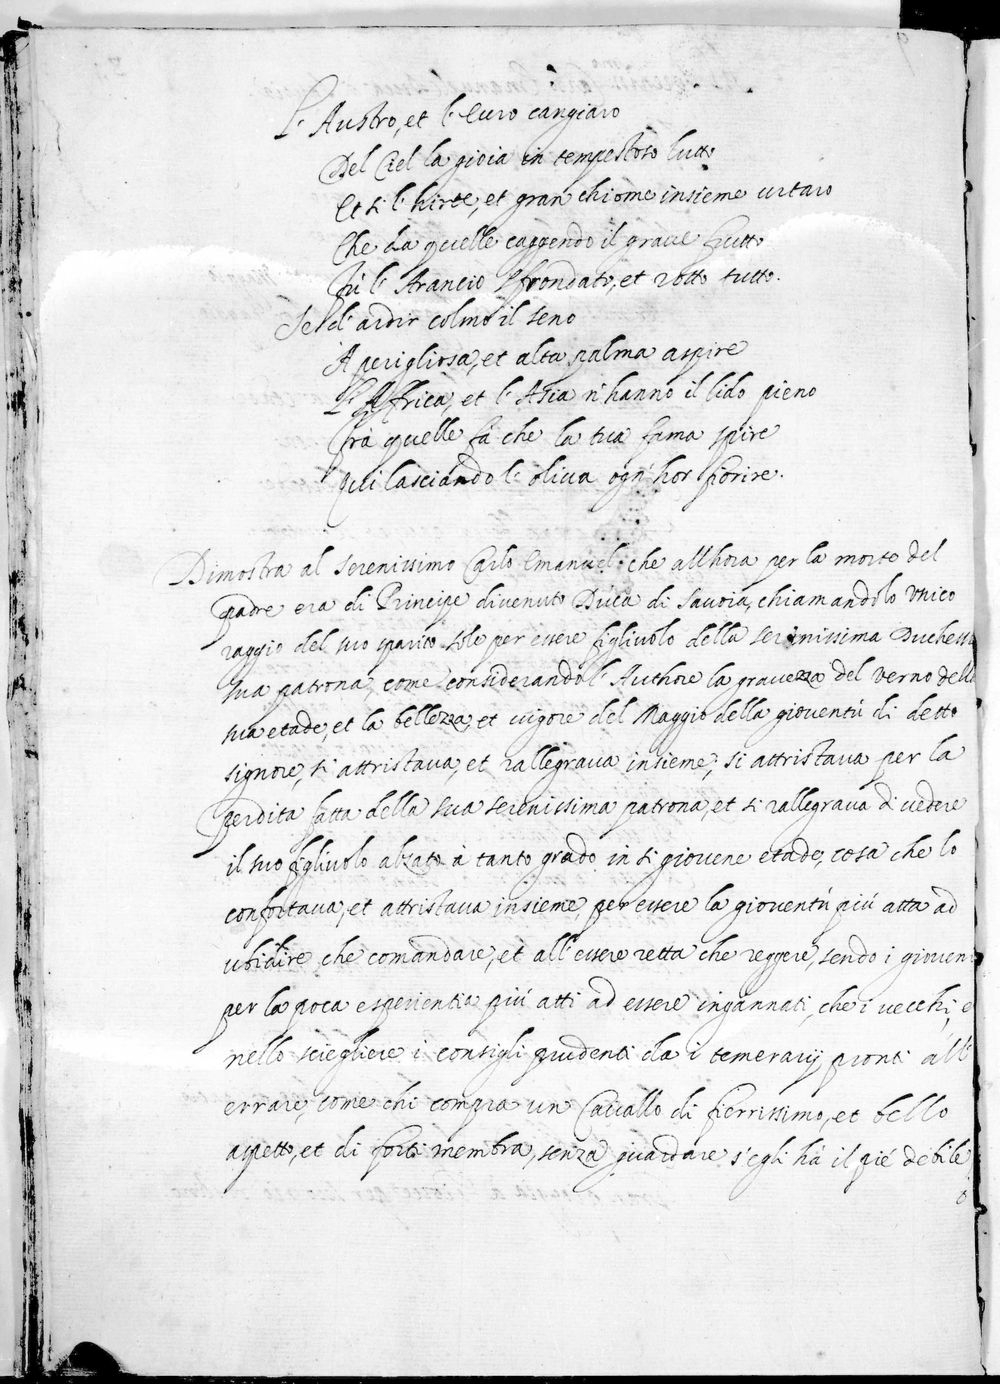 L'Austro, et l'Euro cangiaro
Del Ciel la gioia in tempestoso lutto
Et sì l'hirte, et gran chiome insieme urtaro
Che da quelle caggendo il graue frutto
Fù l'Arancio sfrondato, et rotto tutto.
Se d'ardir colmo il seno
A perigliosa, et alta palma aspire
L'Affrica, et l'Asia n'hanno il lido pieno
Frà quelle fà che la tua fama spire
Qui lasciando l'oliua ogn'hor fiorire.
Dimostra al serenissimo Carlo Emanuel che all'hora per la morte del
padre era di Principe diuenuto Duca di Sauoia, chiamandolo Vnico
raggio del suo sparito sole per essere figliuolo della serenissima Duchessa
sua patrona, come considerando l'Authore la grauezza del verno della
sua etade, et la bellezza, et uigore del Maggio della giouentù di detto
signore, si attristaua, et rallegraua insieme, si attristaua per la
perdita fatta della sua serenissima patrona, et si rallegraua di uedere
il suo figliuolo alzato à tanto grado in sì giouene etade, cosa che lo
confortaua, et attristaua insieme, per essere la giouentù più atta ad
vbidire che comandare, et all'essere retta che reggere, sendo i gioueni
per la poca esperientia più atti ad essere ingannati, che i uecchi, e
nello sciegliere i consigli prudenti da i temerarij pronti all'
errare, come chi compra un Cauallo di fierissimo, et bello
aspetto, et di forti membra, senza guardare s'egli hà il piè debile
o